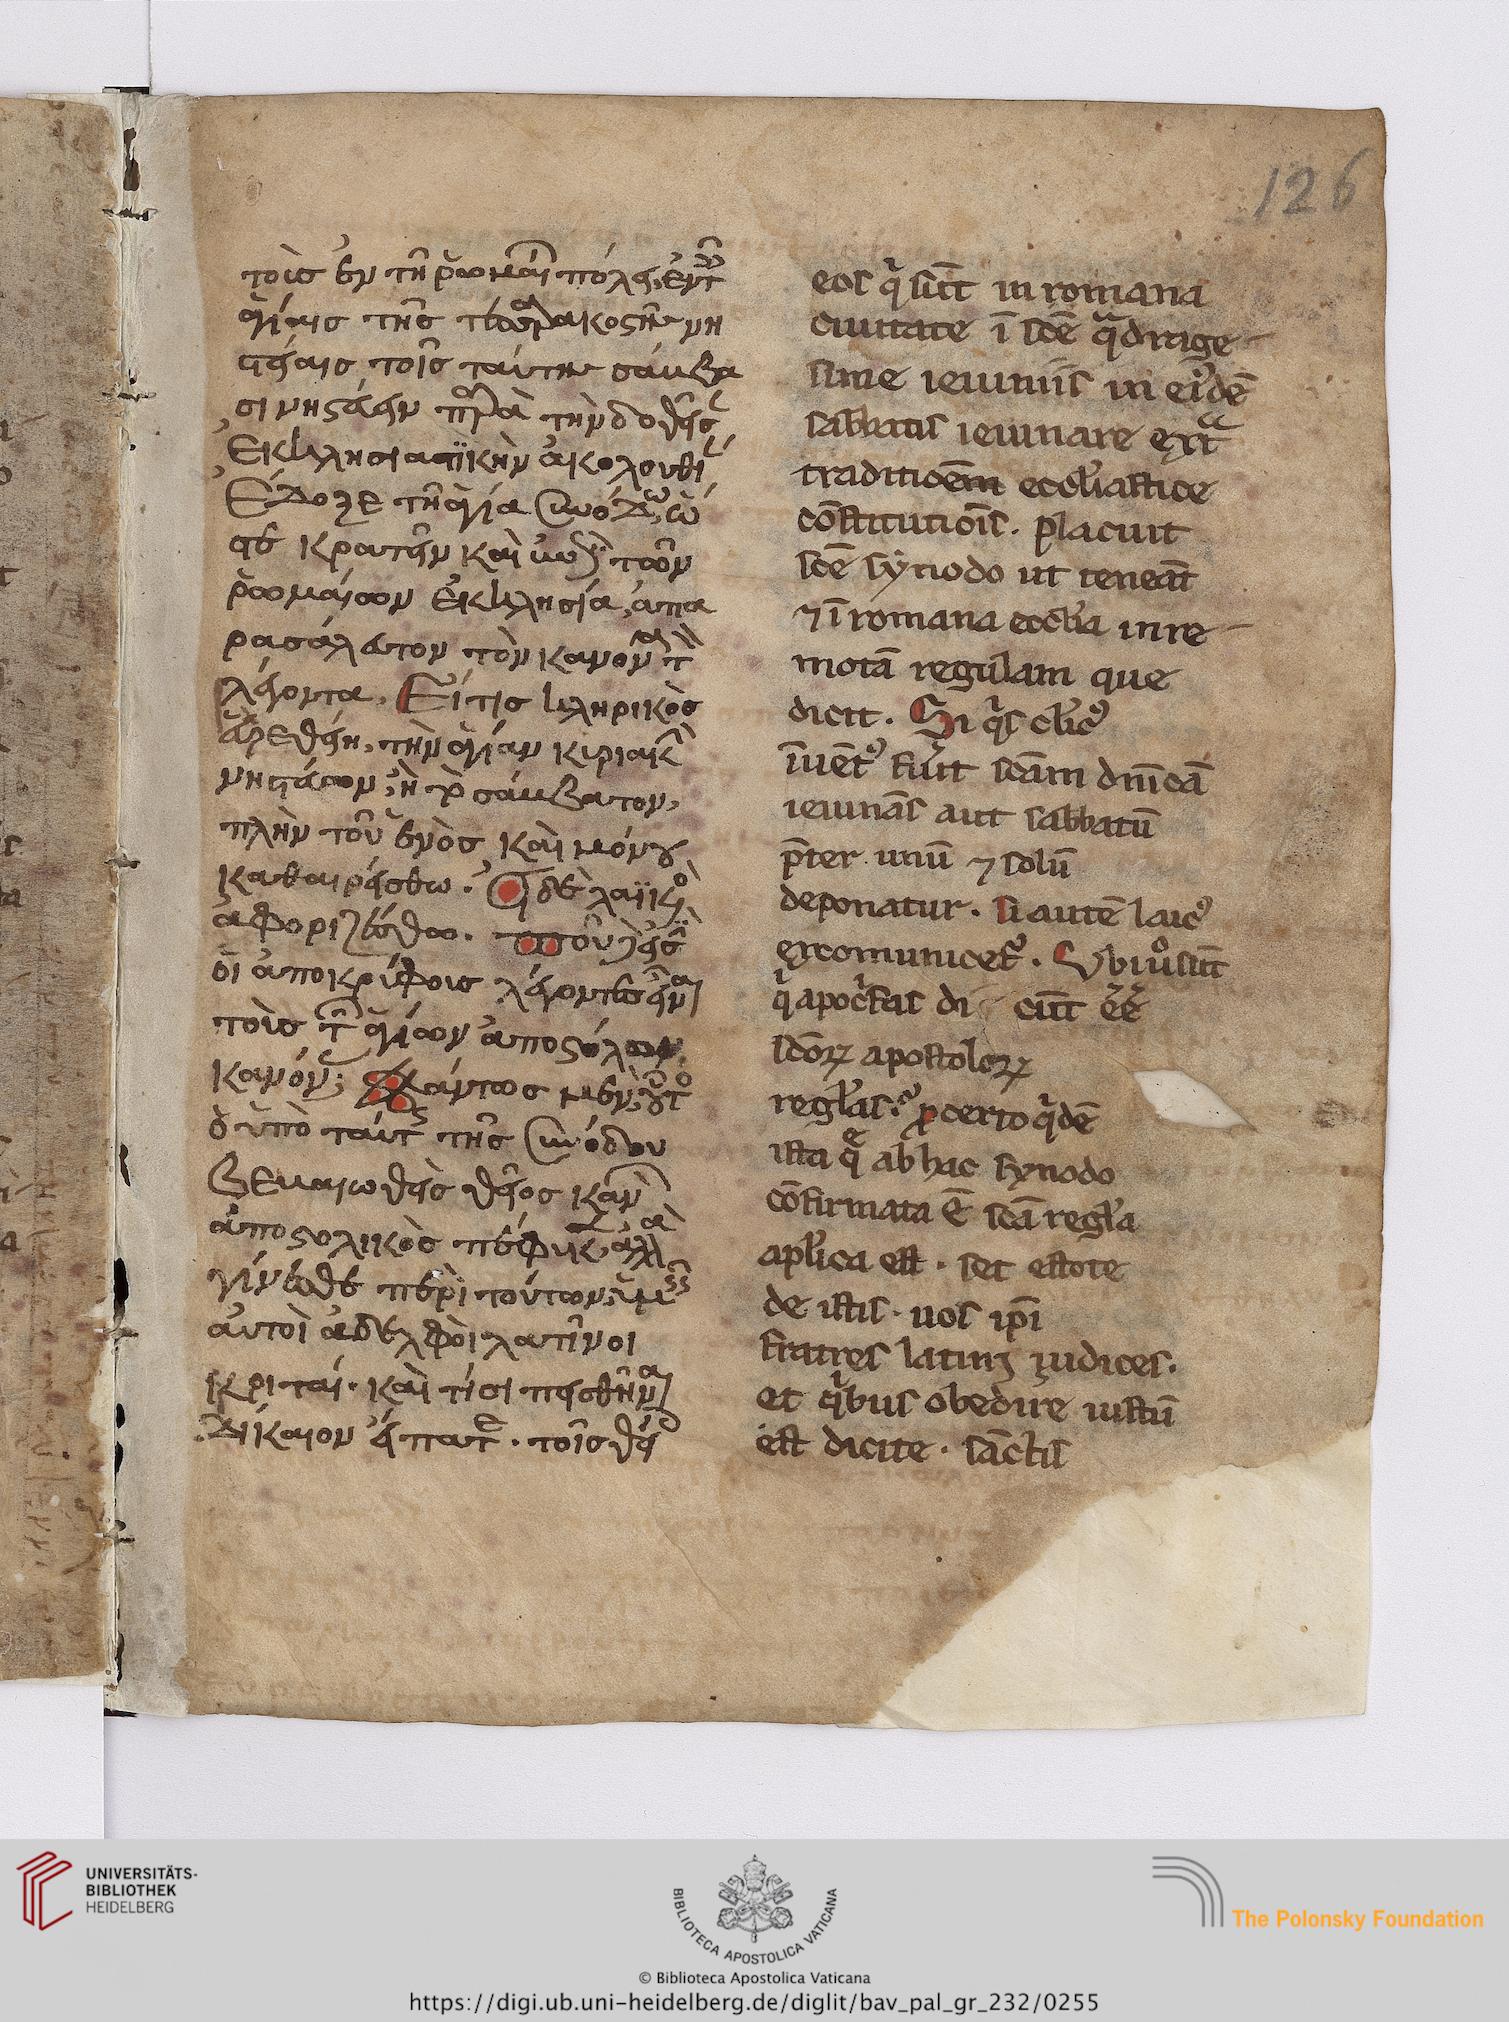 126
τοῖς ἐν τῆ ῥωμαί πόλει, ἐν τ
ἁγίαις τῆς τεσσαρακοστῆς νη
στείαις τοῖς ταύτης σάμβα
σι νηστεύειν παρὰ τὴν δοθεῖσ
ἐκκλησιαστικὴν ἀκολουθί
Ἔδοξε τῆ ἁγία συνόδω, ὥ
στε κρατεῖν καὶ τῶν
ῥωμαίων ἐκκλησία, ἀπα
ρασάλευτον τὸν κανόνα τ
λέγοντα. Εἴ τις κληρικὸς
εὑρεθείη, τὴν ἁγίαν κυριακ
νηστεύων, ἢ τὸ σάμβατον,
πλὴν τοῦ ἑνὸς καὶ μόνου
καθαιρείσθω. Εἰ δὲ λαϊκὸ
ἀφοριζέσθω. ποῦ
οἱ ἀποκρύφοις λέγοντες εἶναι
τοῖς τ ἁγίων ἀποστόλων
κανόν; Πάντως μὲν οὗτο
ὁ ὑπὸ ταύτ τῆς συνόδου
βεβαιωθεὶς θεῖος καν
ἀποστολικὸς πέφυκ ἀλλὰ
γίνεσθε περὶ τούτων, ὑμεῖς
αὐτοὶ ἀδελφοὶ λατῖνοι
κριταί. καὶ τίσι πεισθῆναι
δίκαιον εἴπατε. τοῖς θεί
eos q sūt in romana
ciuitate ī scē qadrage
sime ieiuniis in eidē
sabbatis ieiunare extra
traditioem eccliastice
cōstitutiōis. placuit
scē synodo ut teneāt
⁊ ī romana ecclia inre
motā regulam que
dicit. Si qs clic
īuēt fuit scām dnicā
ieiunās aut sabbatū
pter unū ⁊ solū
deponatur. si autē laic
excomunicet. Vbi sūt
q apocfas di cūt eē
scoꝝ apostoloꝝ
reglas. ꝓ certo qdē
ista q ab hac synodo
cōfirmata ē scā regla
aplica est. set estote
de istis. uos ipi
fratres latini iudices.
et qbus obedire iustū
est dicite. sāctis
UNIVERSITÄTS-
BIBLIOTHEK
HEIDELBERG
BIBLIOTECA APOSTOLICA VATICANA
The Polonsky Foundation
© Biblioteca Apostolica Vaticana
https://digi.ub.uni-heidelberg.de/diglit/bav_pal_gr_232/0255